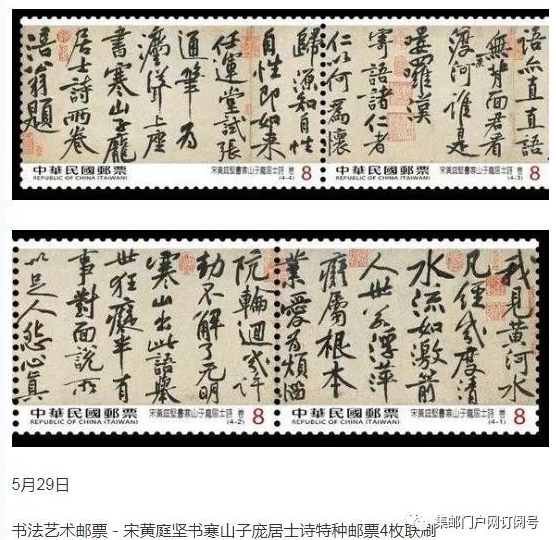 語亦直直語
無背面君看
渡河誰是
嘍羅漢
寄語諸仁者
仁以何爲懷
歸源知自性
自性即如來
任運堂試張
通筆爲
灋聳上座
書寒山子龐
居士詩兩卷
涪翁題
中華民國郵票
REPUBLIC OF CHINA (TAIWAN)
宋黃庭堅書寒山子龐居士詩 卷
(4-4)
8
中華民國郵票
REPUBLIC OF CHINA (TAIWAN)
宋黃庭堅書寒山子龐居士詩 卷
(4-3)
8
我見黃河水
凡經幾度清
水流如激箭
人世若浮萍
癡屬根本
業愛爲煩惱
阬輪迴幾許
劫不解了无明
寒山出此語舉
世狂癡半有
事對面說所
以足人怨心真
中華民國郵票
REPUBLIC OF CHINA (TAIWAN)
宋黃庭堅書寒山子龐居士詩 卷
(4-2)
8
中華民國郵票
REPUBLIC OF CHINA (TAIWAN)
宋黃庭堅書寒山子龐居士詩 卷
(4-1)
8
5月29日
书法艺术邮票 - 宋黄庭坚书寒山子庞居士诗特种邮票4枚联刷
集邮门户网订阅号